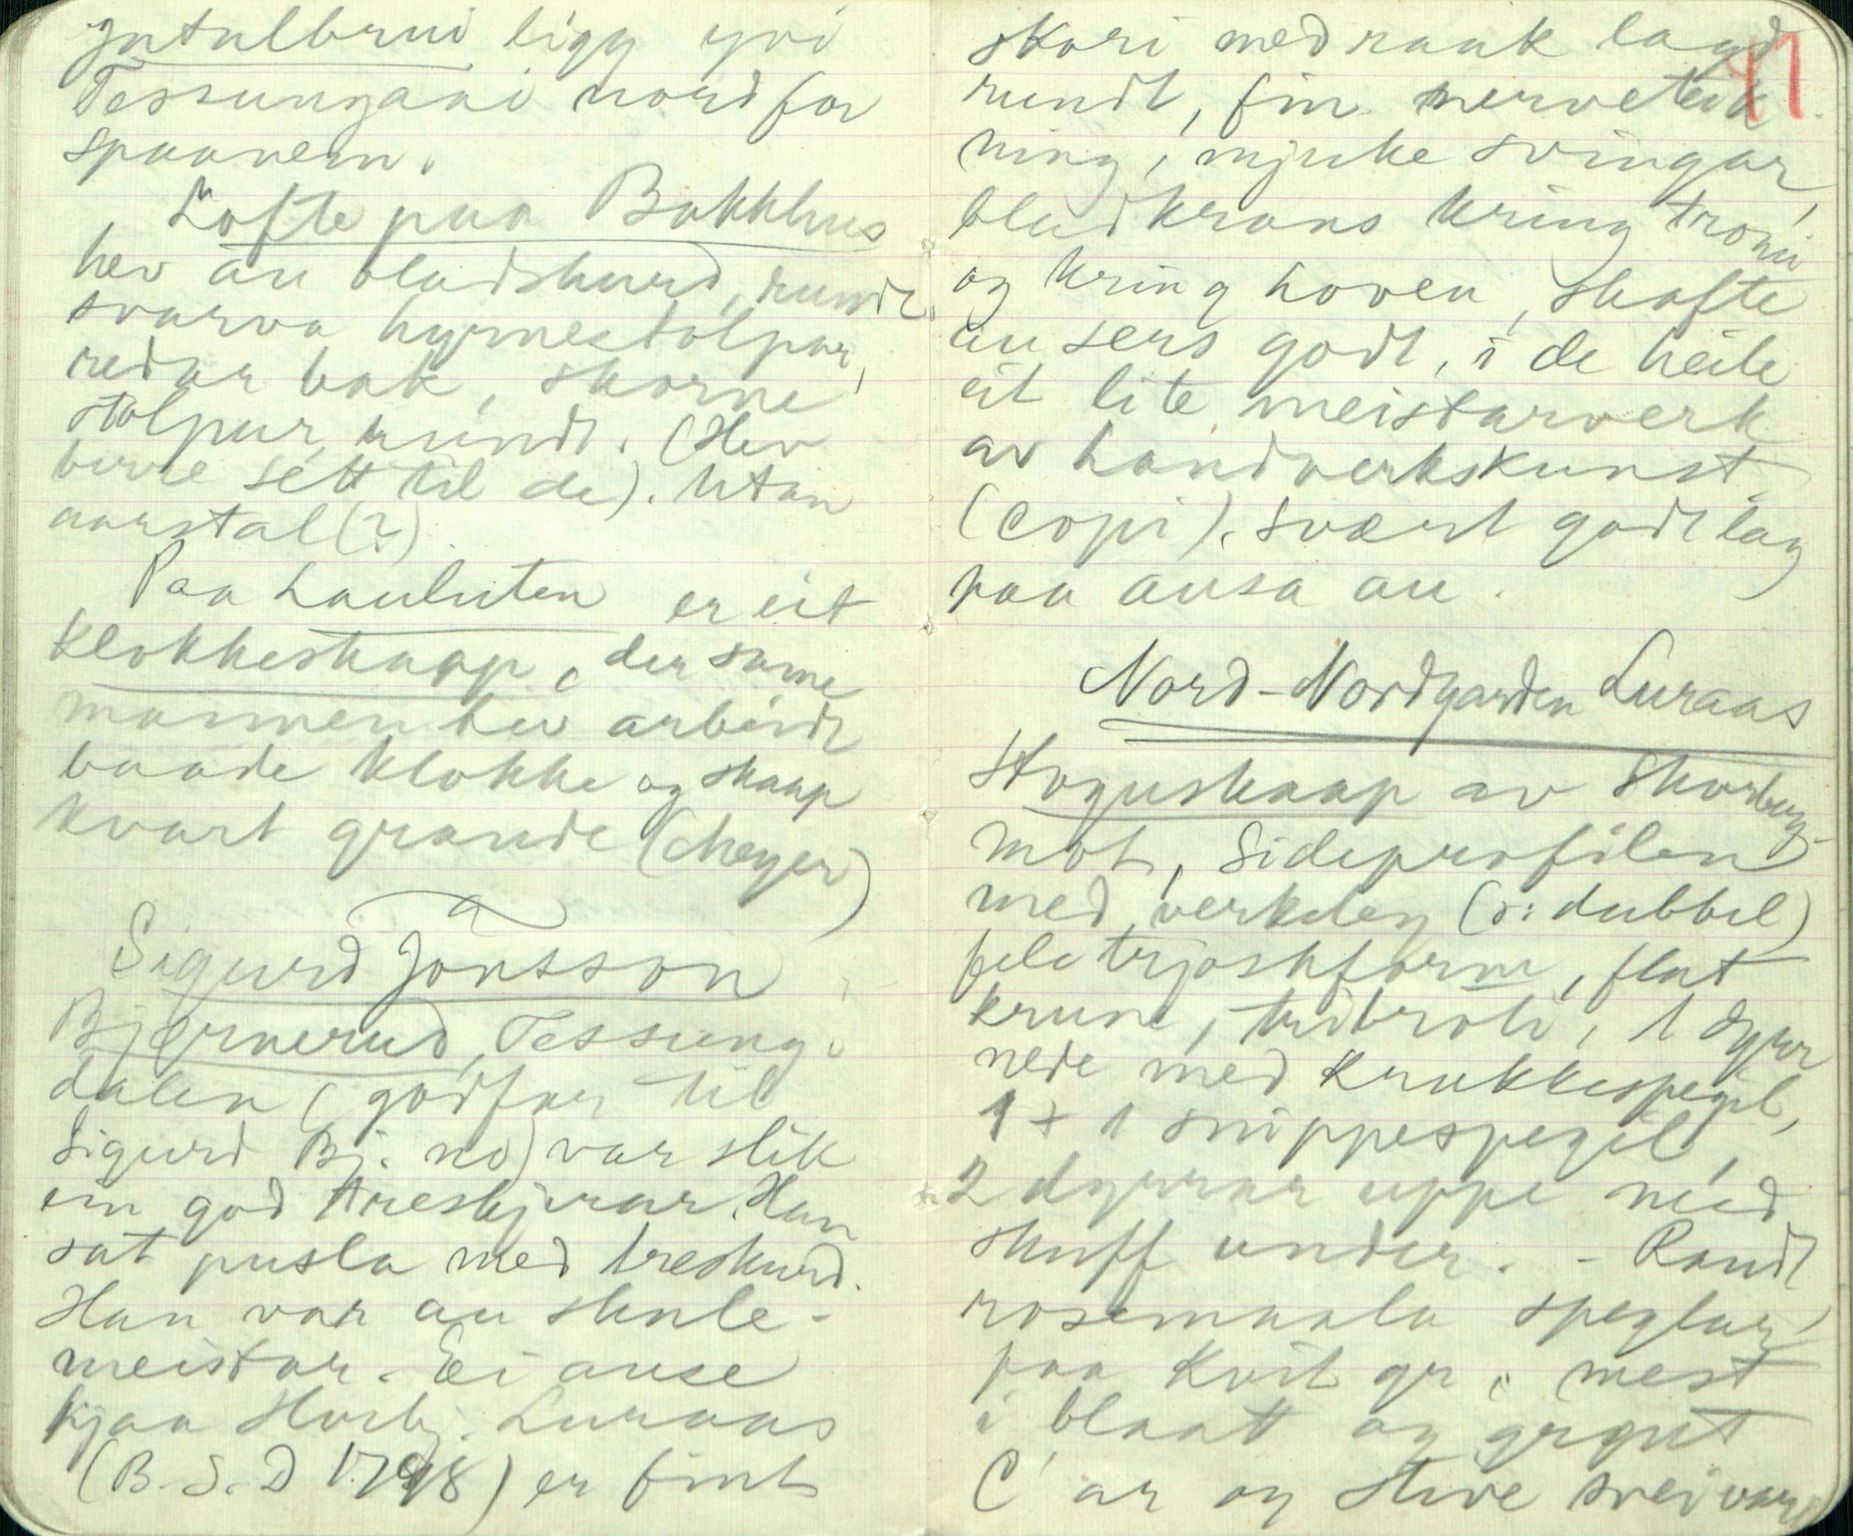 Jutulbrui ligg yvi
Tessungaai nordfor
spaanem.
Lofte paa Bakkhus
hev au bladskurd, rundt
svarva hyrnestolpar,
redar bak, skorne
stolpur rundt. (Hev
berre sétt til de). Utan
aarstal (?)
Paa Lauluten er eit
klokkeskaap, der same
mannen hev arbeidt
baade klokke og skaap
kvart grande (Meyer)
Sigurd Jonsson
Bjørnerud, Tessung-
dalen (godfar til
Sigurd Bj. no) var slik
ein god treskjerar. Han
sat pusla med treskurd.
Han var au skule-
meistar. Ei ause
hjaa Torbj. Luraas
(B. S. D 1798) er fint
41
skori med raak lagd
rundt, fin nerveteik
ning, mjuke svingar,
bladkrans kring tronin
og kring hoven, skafte
au sers godt, i de heile
eit lite meistarverk
av handverkskunst.
(copi). Svært godt lag
paa ausa au.
Nord-Nordgarden Luraas
Stoguskaap av Skorberg-
mot, Sideprofilen
med verkeleg (ɔ: dubbel)
fele trjoskform, flat
krune, tribroti, 1 dyur
nede med krukkespegil,
1 + 1 snippespegil,
2 dyrrar uppe med
skuff under. - Randt
rosemaala speglar,
paa kvit gr., mest
i blaatt og grønt
C'ar og stive sveivar